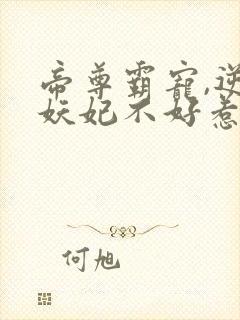 帝尊霸宠,逆
妖妃不好惹
何旭